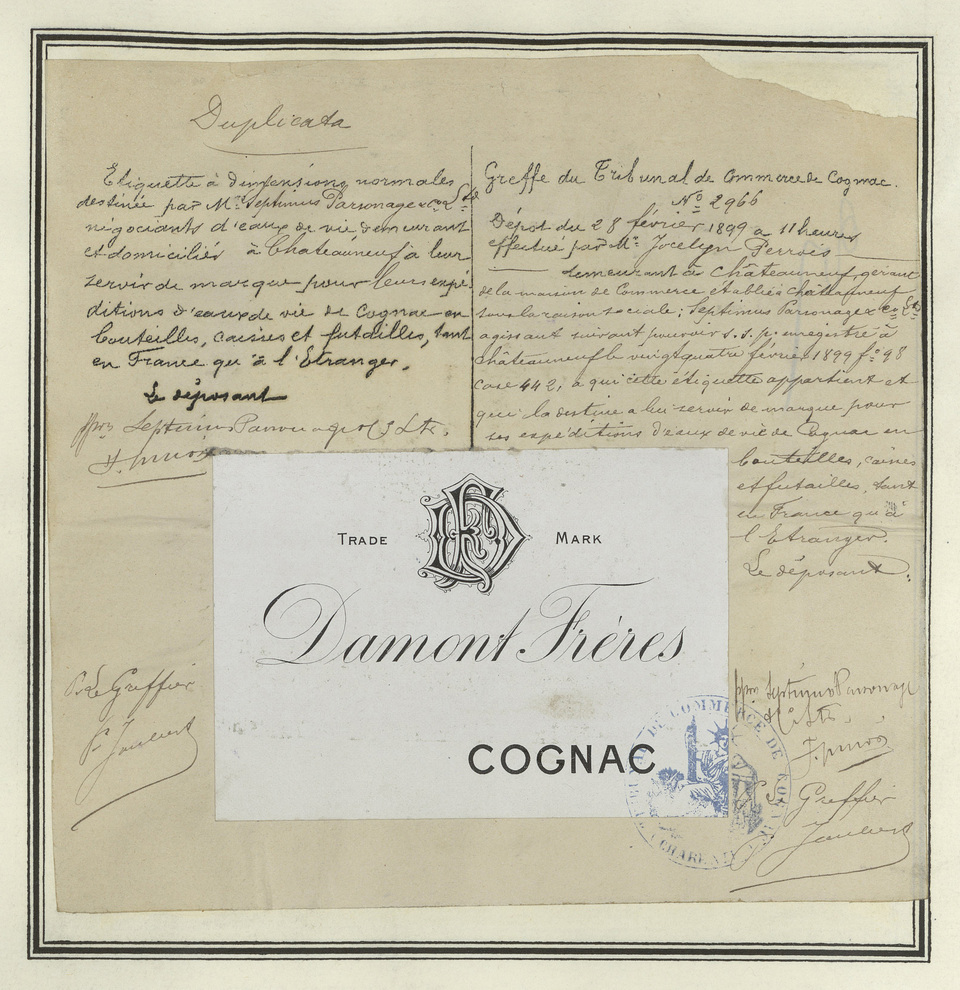 Duplicata
Etiquette à dimensions normales
destinée par Mrs Septimus Parsonage & Co Ltd
négociants d'eaux de vie demeurant
et domiciliés à Châteauneuf à leur
servir de marque pour leurs expé-
ditions d'eaux de vie de Cognac en
bouteilles, caisses et futailles, tant
en France qu'à l'Etranger.
Le déposant
ppon Septimus Parsonage & Co Ltd.
P. Le Greffier
Greffe du Tribunal de Commerce de Cognac.
No 2966
Dépôt du 28 février 1899 à 11 heures
effectué par Mr Jocelyn Perrois
demeurant à Châteauneuf, gérant
de la maison de Commerce établie à Châteauneuf
sous la raison sociale: Septimus Parsonage & Co Ltd
agissant suivant pouvoir s.s.p. enregistré à
Châteauneuf le vingt quatre février 1899 fo 98
case 442, à qui cette étiquette appartient et
qui la destine à lui servir de marque pour
ses expéditions d'eaux de vie de Cognac en
bouteilles, caisses
et futailles, tant
en France qu'à
l'Etranger.
Le déposant.
ppon Septimus Parsonage
& Co Ltd.
Le Greffier
TRADE MARK
Damont Frères
COGNAC
TRIBUNAL DE COMMERCE DE COGNAC
CHARENTE